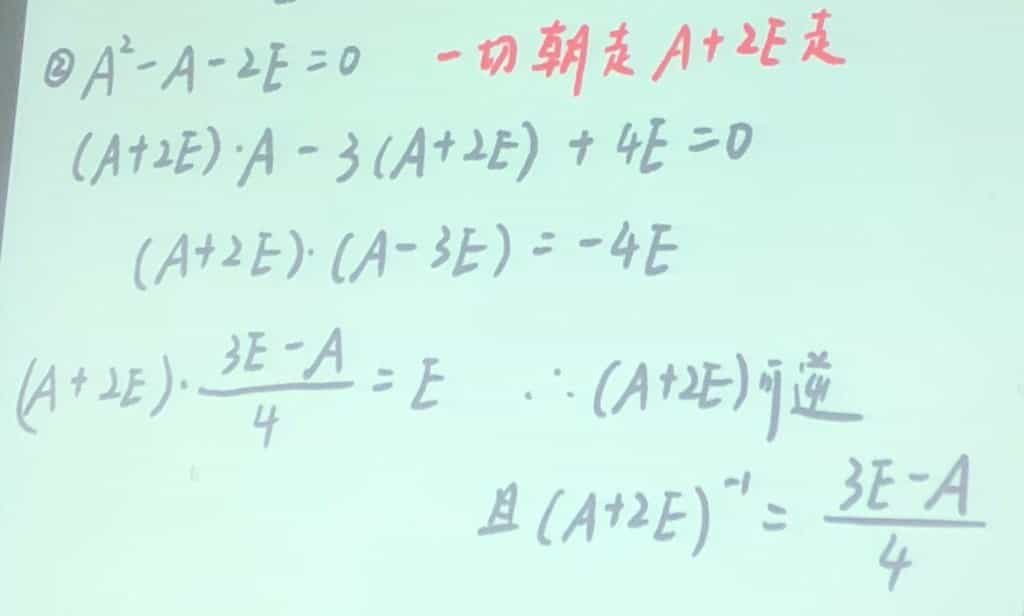 ② A²-A-2E=0 一切朝走 A+2E 走
(A+2E)·A - 3(A+2E) + 4E = 0
(A+2E)·(A-3E) = -4E
(A+2E)·\frac{3E-A}{4} = E ∴ (A+2E)可逆
且 (A+2E)⁻¹ = \frac{3E-A}{4}